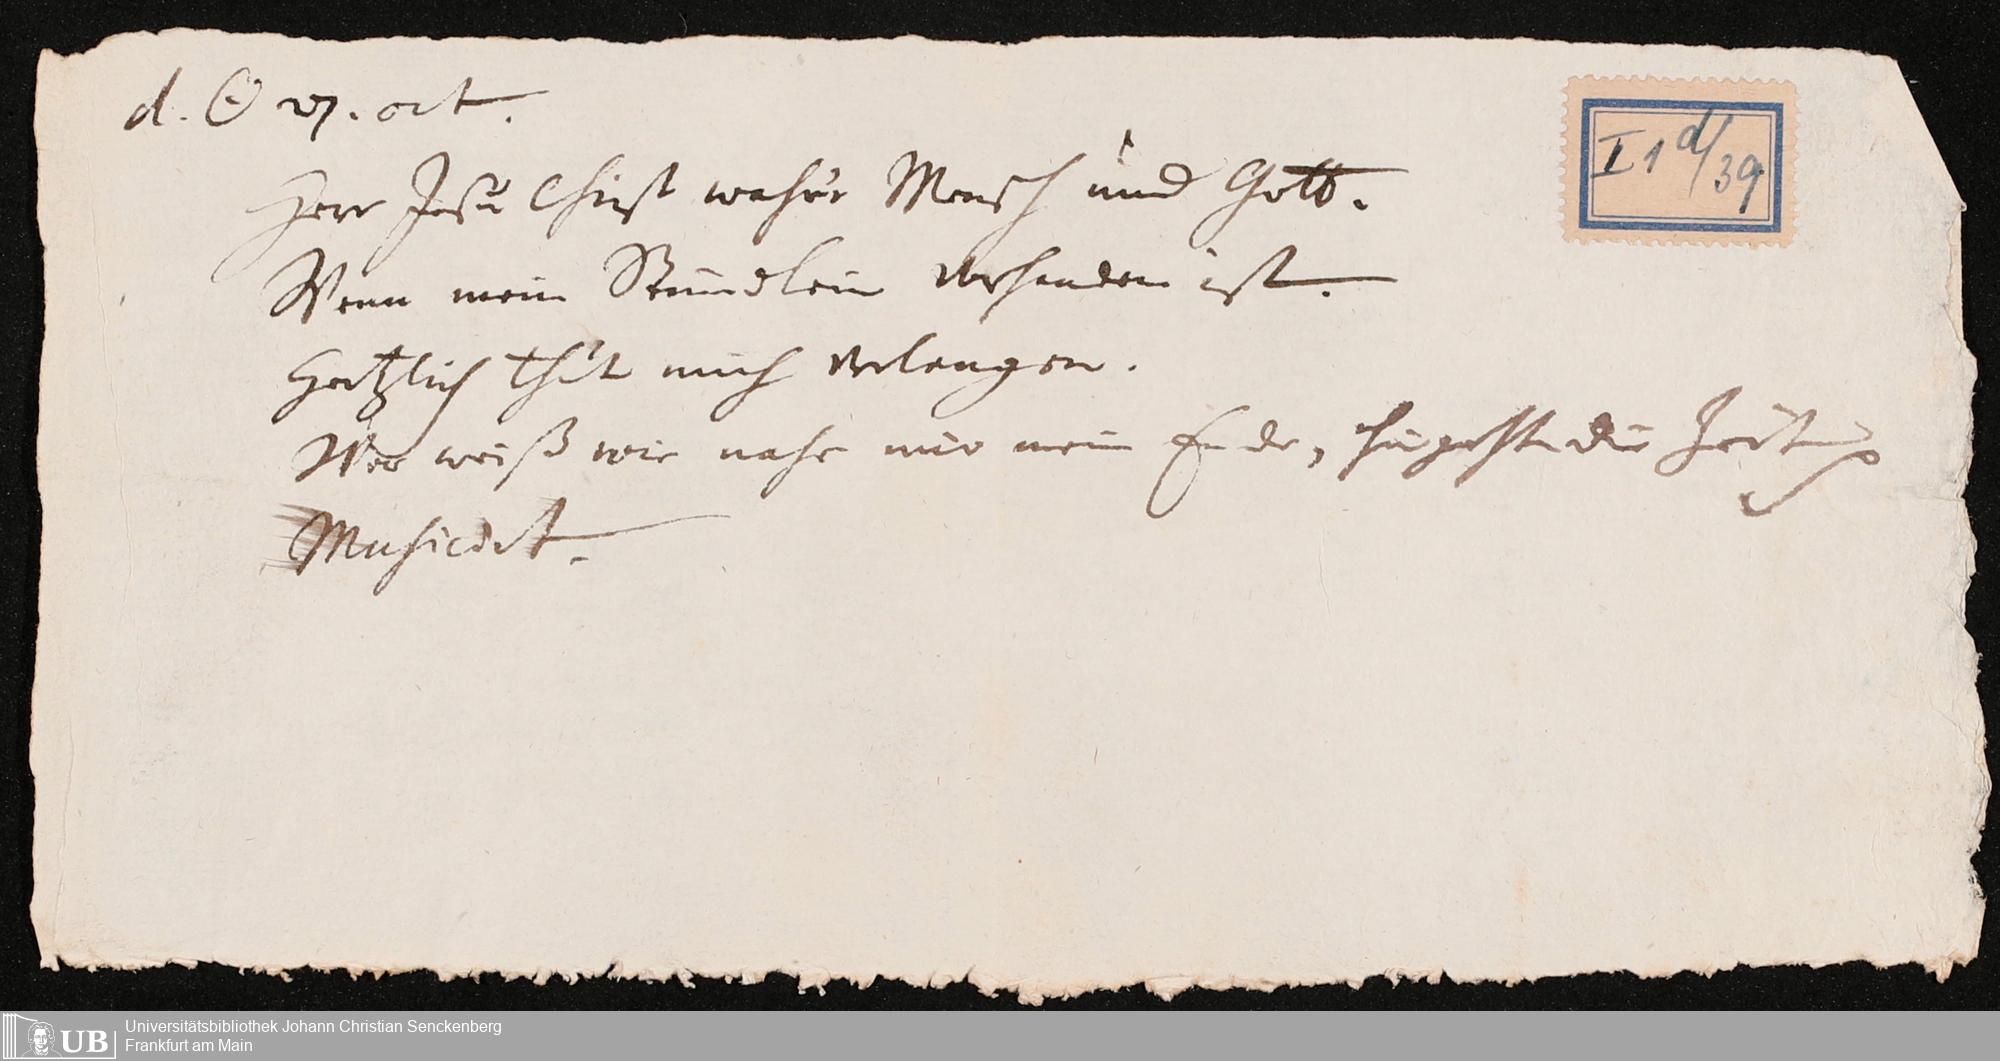 d. ☉ vj. oct.
I 1 d/39
Herr Jesu Christ wahr Mensch und Gott.
Wenn mein Stündlein verhanden ist.
Hertzlich thut mich verlangen.
Wer weiß wie nahe mir mein Ende, hingeht die Zeit
Musicirt.
Universitätsbibliothek Johann Christian Senckenberg
Frankfurt am Main
UB